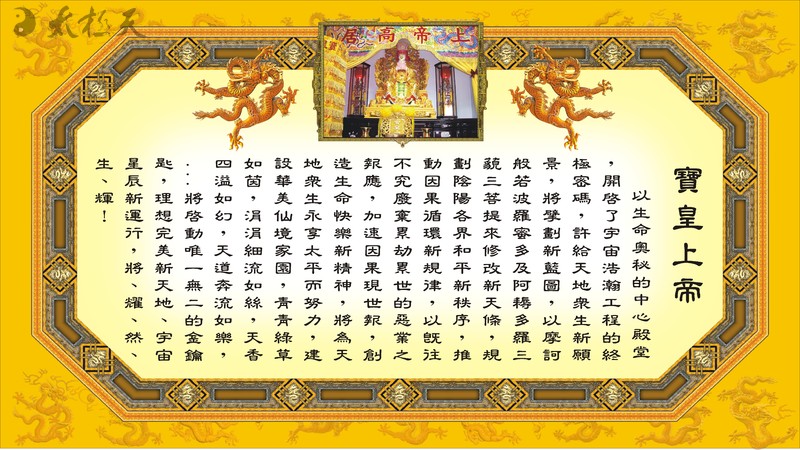 上帝高居
寶皇上帝
以生命奧秘的中心殿堂
，開啓了宇宙浩瀚工程的終
極密碼，許給天地衆生新願
景，將擘劃新藍圖，以摩訶
般若波羅蜜多及阿耨多羅三
藐三菩提來修改新天條，規
劃陰陽各界和平新秩序，推
動因果循環新規律，以既往
不究廢棄累劫累世的惡業之
報應，加速因果現世報，創
造生命快樂新精神，將為天
地衆生永享太平而努力，建
設華美仙境家園，青青綠草
如茵，涓涓細流如絲，天香
四溢如幻，天道奔流如樂，
．．將啓動唯一無二的金鑰
匙，理想完美新天地、宇宙
星辰新運行，將、耀、然、
生、輝！